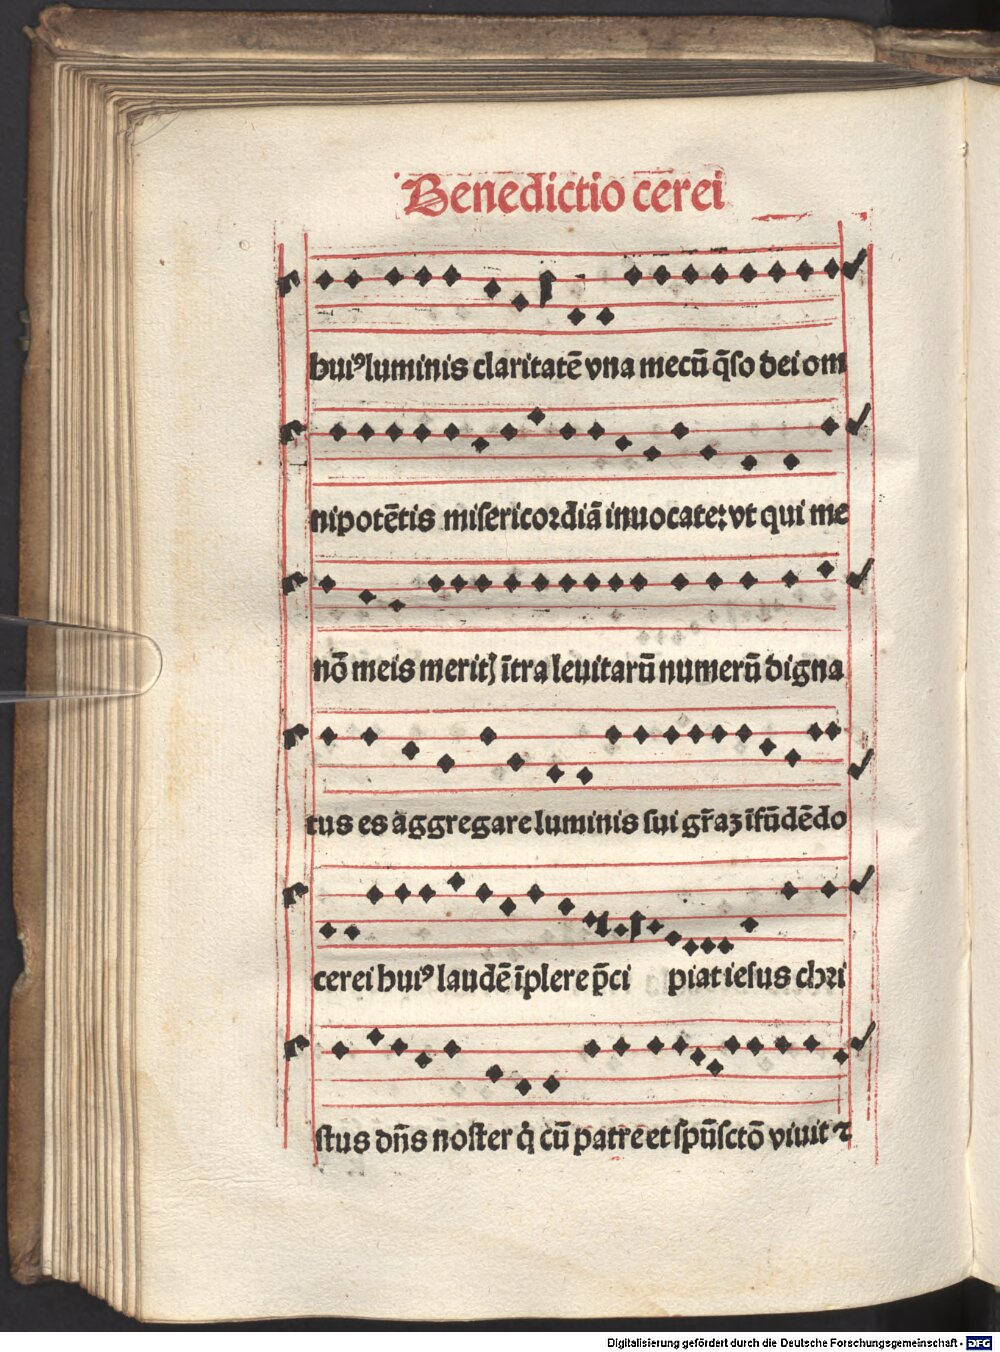 Benedictio cerei
huiꝰ luminis claritatē vna mecū q̄so dei om
nipotētis misericordiā inuocate: vt qui me
nō meis meritꝭ ītra leuitarū numerū digna
tus es aggregare luminis sui gr̄aꝫ īfūdēdo
cerei huiꝰ laudē īplere p̄ci piat iesus chri
stus dn̄s noster q̇ cū patre et spūsctō viuit ⁊
Digitalisierung gefördert durch die Deutsche Forschungsgemeinschaft - DFG